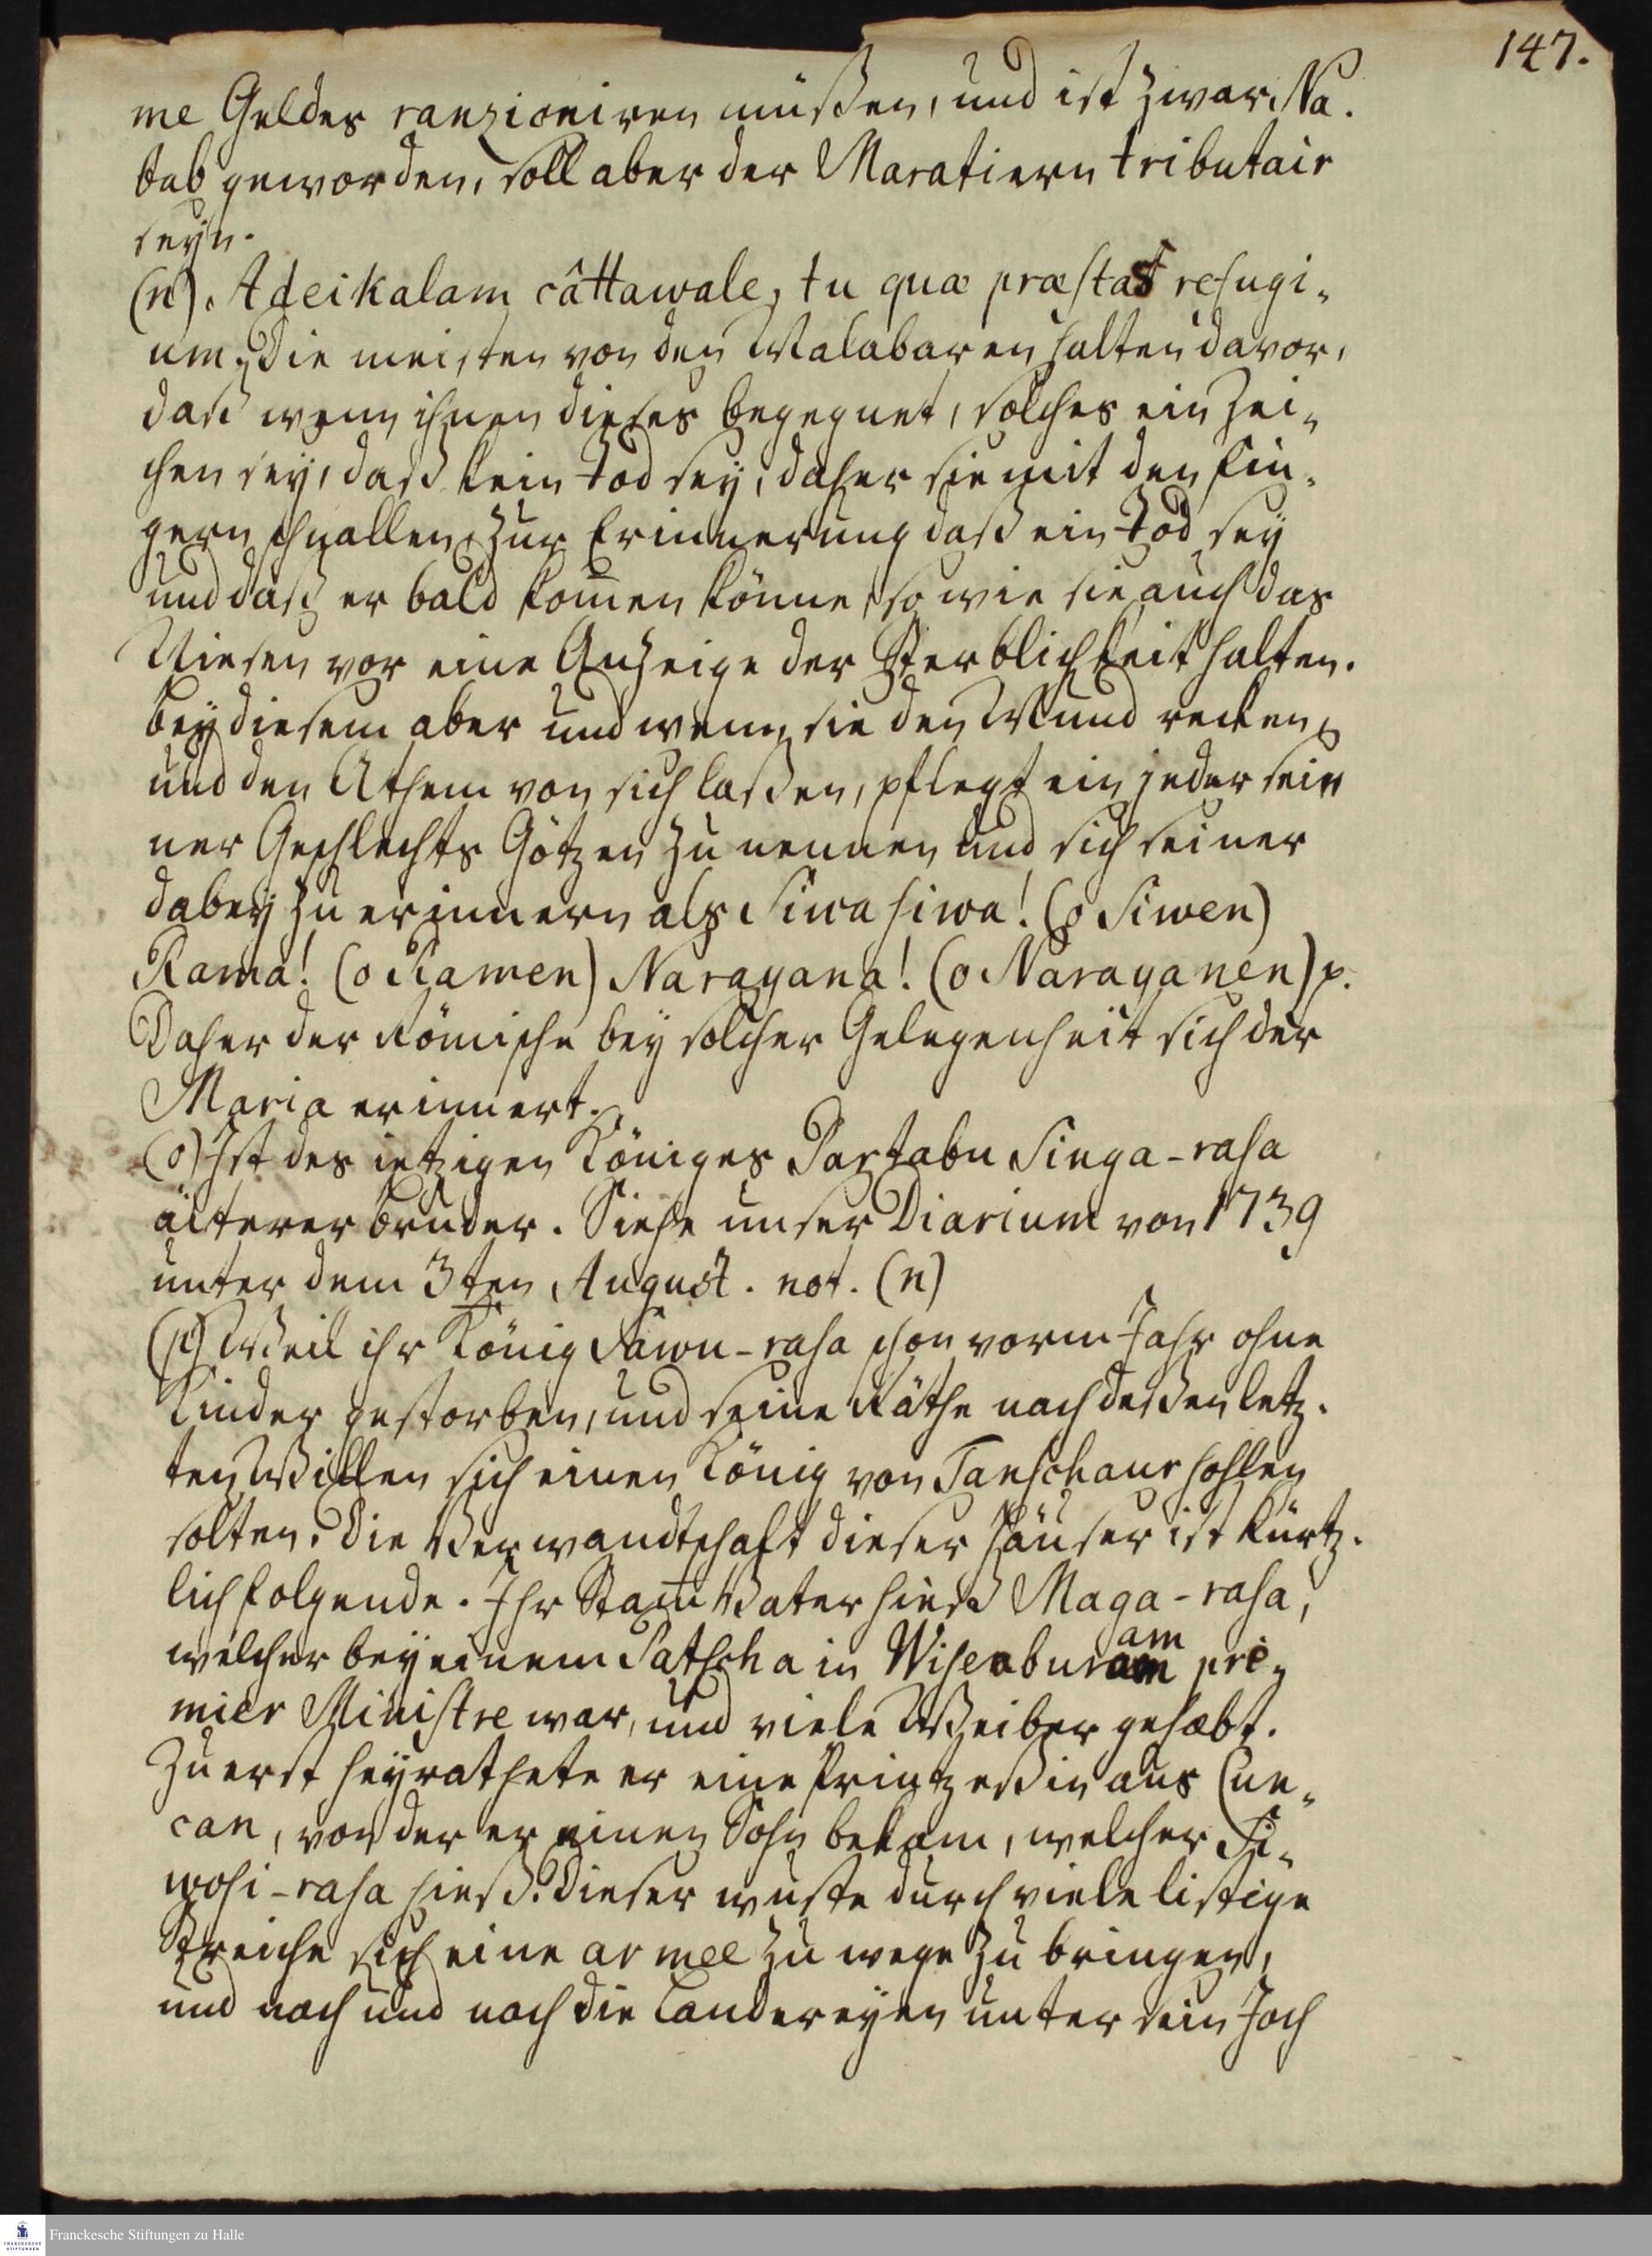 147.
me Geldes ranzioniren müßen, und ist zwar Na¬
bab geworden, soll aber der Maratiern tributair
seyn.
(n). Adeikalam câttawale, tu quæ præstas refugi¬
um. Die meisten von den Malabaren halten davor,
daß wenn ihnen dieses begegnet, solches ein Zei¬
chen sey, daß kein Tod sey, daher sie mit den Fin¬
gern schnallen, zur Erinnerung daß ein Tod sey
und daß er bald kom̄en könne, so wie sie auch das
Niesen vor eine Anzeige der Sterblichkeit halten.
Bey diesem aber und wenn sie den Mund recken
und den Athem von sich laßen, pflegt ein jeder sei¬
ner Geschlechts Götzen zu nennen und sich seiner
dabey zu erinnern als Siwa siwa! (o Siwen)
Rama! (o Ramen) Narayana! (o Narayanen) p.
Daher der Römische bey solcher Gelegenheit sich der
Maria erinnert.
(o) Ist des ietzigen Königes Partabu Singa-rasa
älterer Bruder. Siehe unser Diarium von 1739
unter dem 3ten August. not. (n)
(p) Weil ihr König Sawu-rasa schon vorm Jahr ohne
Kinder gestorben, und seine Räthe nach deßen letz¬
ten Willen sich einen König von Tanschaur hohlen
solten. Die Verwandtschaft dieser Häuser ist kürtz¬
lich folgende. Ihr Stam̄ Vater hieß Maga-rasa,
welcher bey einem Patscha in Wisenburam pre¬
mier Ministre war, und viele Weiber gehabt.
Zuerst heyrathete er eine Printzeßin aus Cun¬
can, von der er einen Sohn bekam, welcher Si¬
wosi-rasa hieß. Dieser wuste durch viele listige
Streiche sich eine armee zu wege zu bringen,
und nach und nach die Landereyen unter sein Joch
Franckesche Stiftungen zu Halle